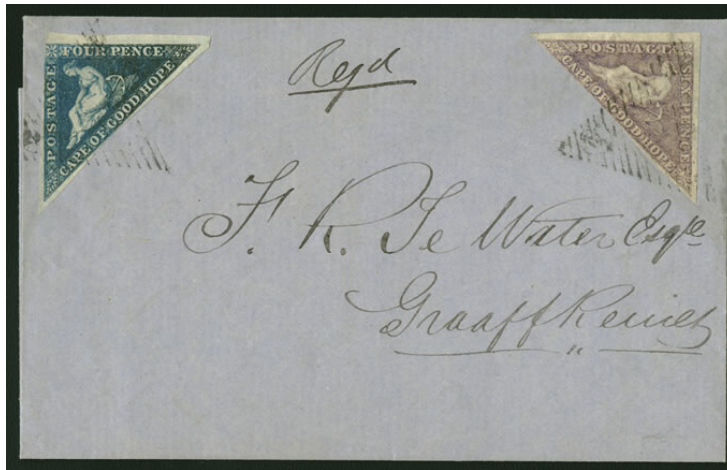 FOUR PENCE
POSTAGE
CAPE OF GOOD HOPE
Regd
POSTAGE
SIX PENCE
CAPE OF GOOD HOPE
F. K. Te Water Esqre
Graaff Reinet